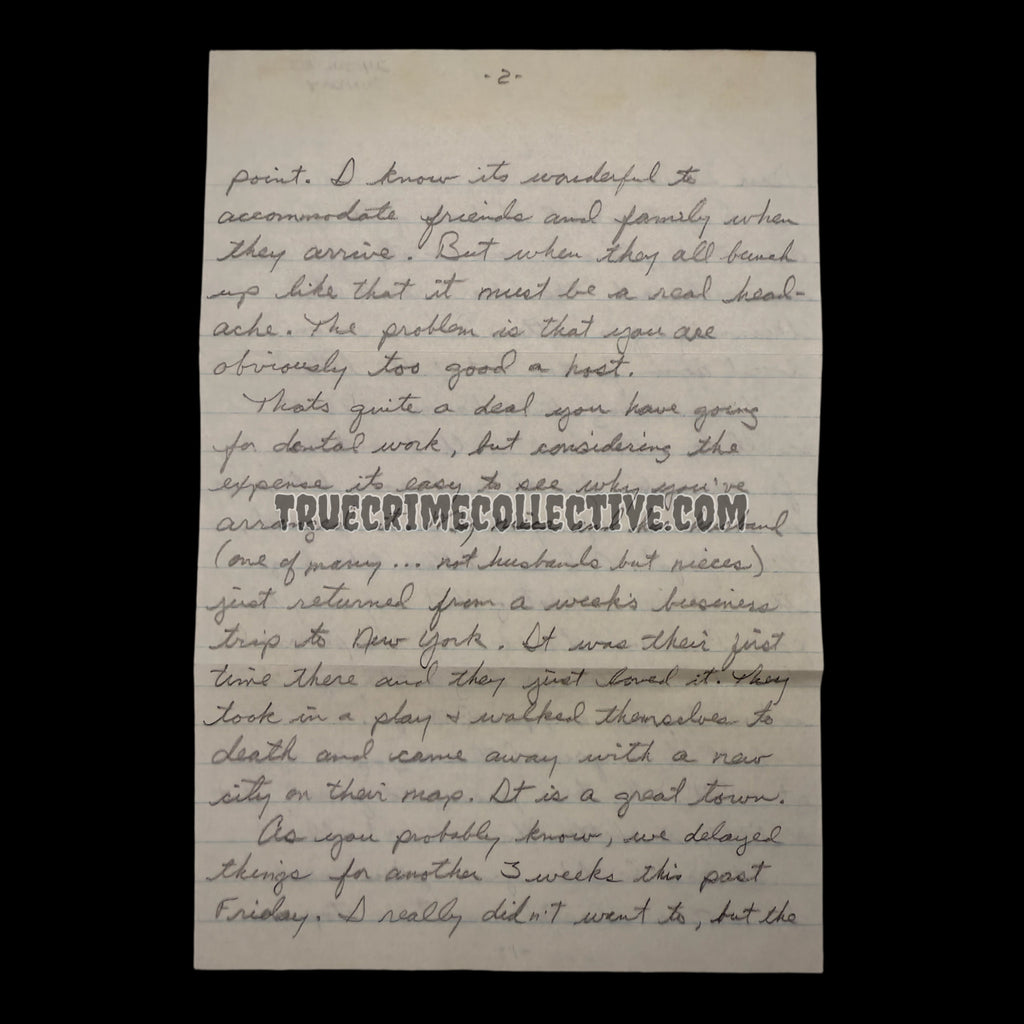 -2-
point. I know its wonderful to
accommodate friends and family when
they arrive. But when they all bunch
up like that it must be a real head-
ache. The problem is that you are
obviously too good a host.
Thats quite a deal you have going
for dental work, but considering the
expense its easy to see why you've
TRUECRIMECOLLECTIVE.COM
(one of many... not husbands but nieces)
just returned from a weeks business
trip to New York. It was their first
time there and they just loved it. They
took in a play & walked themselves to
death and came away with a new
city on their map. It is a great town.
As you probably know, we delayed
things for another 3 weeks this past
Friday. I really didn't want to, but the